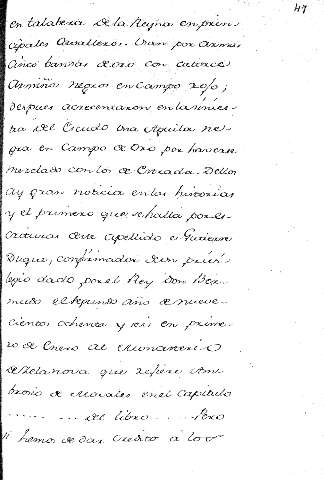 47
en talabera de la Reyna en prin-
cipales Cavalleros. Usan por armas
cinco bandas de oro con catorce
Armiños negros en campo rojo;
despues acrecentaron en la sinies-
tra del Escudo una Aguila ne-
gra en Campo de Oro por haverse
mezclado con los de Estrada. Dellos
ay gran noticia en las historias
y el primero que se halla por es-
crituras deste apellido es Gutierre
Duque, confirmador de un privi-
legio dado por el Rey Don Ber-
mudo el segundo año de nueve-
cientos ochenta y seis en prime-
ro de Enero al Monasterio
de Zelanova que refiere Am-
brosio de Morales en el Capitulo
...... ... del libro ..... Pero
si hemos de dar credito a los